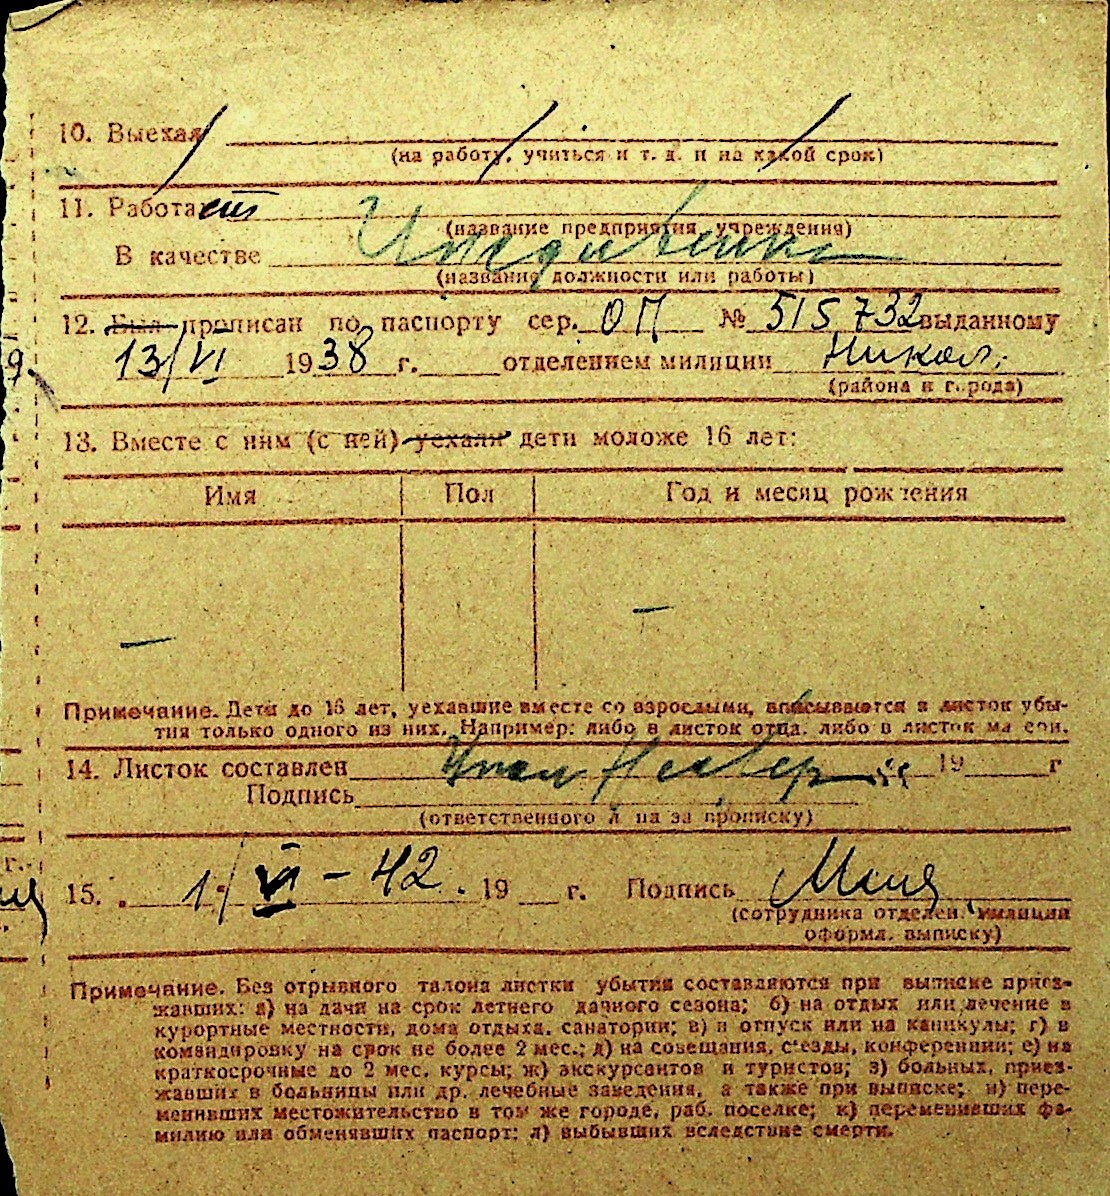 10. Выехал
(на работу, учиться и т. д. и на какой срок)
11. Работает
(название предприятия, учреждения)
В качестве Иждивенка
(название должности или работы)
12. Был прописан по паспорту сер. ОП № 515732 выданному
13/VI 1938 г. отделением милиции Никол.
(района и города)
13. Вместе с ним (с ней) уехали дети моложе 16 лет:
Имя Пол Год и месяц рождения
— —
Примечание. Дети до 16 лет, уехавшие вместе со взрослыми, вписываются в листок убы-
тия только одного из них. Например: либо в листок отца, либо в листок матери.
14. Листок составлен 19 г
Подпись
(ответственного лица за прописку)
15. 1/VI – 42. 19 г. Подпись
(сотрудника отделен. милиции
оформл. выписку)
Примечание. Без отрывного талона листки убытия составляются при выписке приез-
жавших: а) на дачи на срок летнего дачного сезона; б) на отдых или лечение в
курортные местности, дома отдыха, санатории; в) в отпуск или на каникулы; г) в
командировку на срок не более 2 мес.; д) на совещания, съезды, конференции; е) на
краткосрочные до 2 мес. курсы; ж) экскурсантов и туристов; з) больных, приез-
жавших в больницы или др. лечебные заведения, а также при выписке; и) пере-
менивших местожительство в том же городе, раб. поселке; к) переменивших фа-
милию или обменявших паспорт; л) выбывших вследствие смерти.